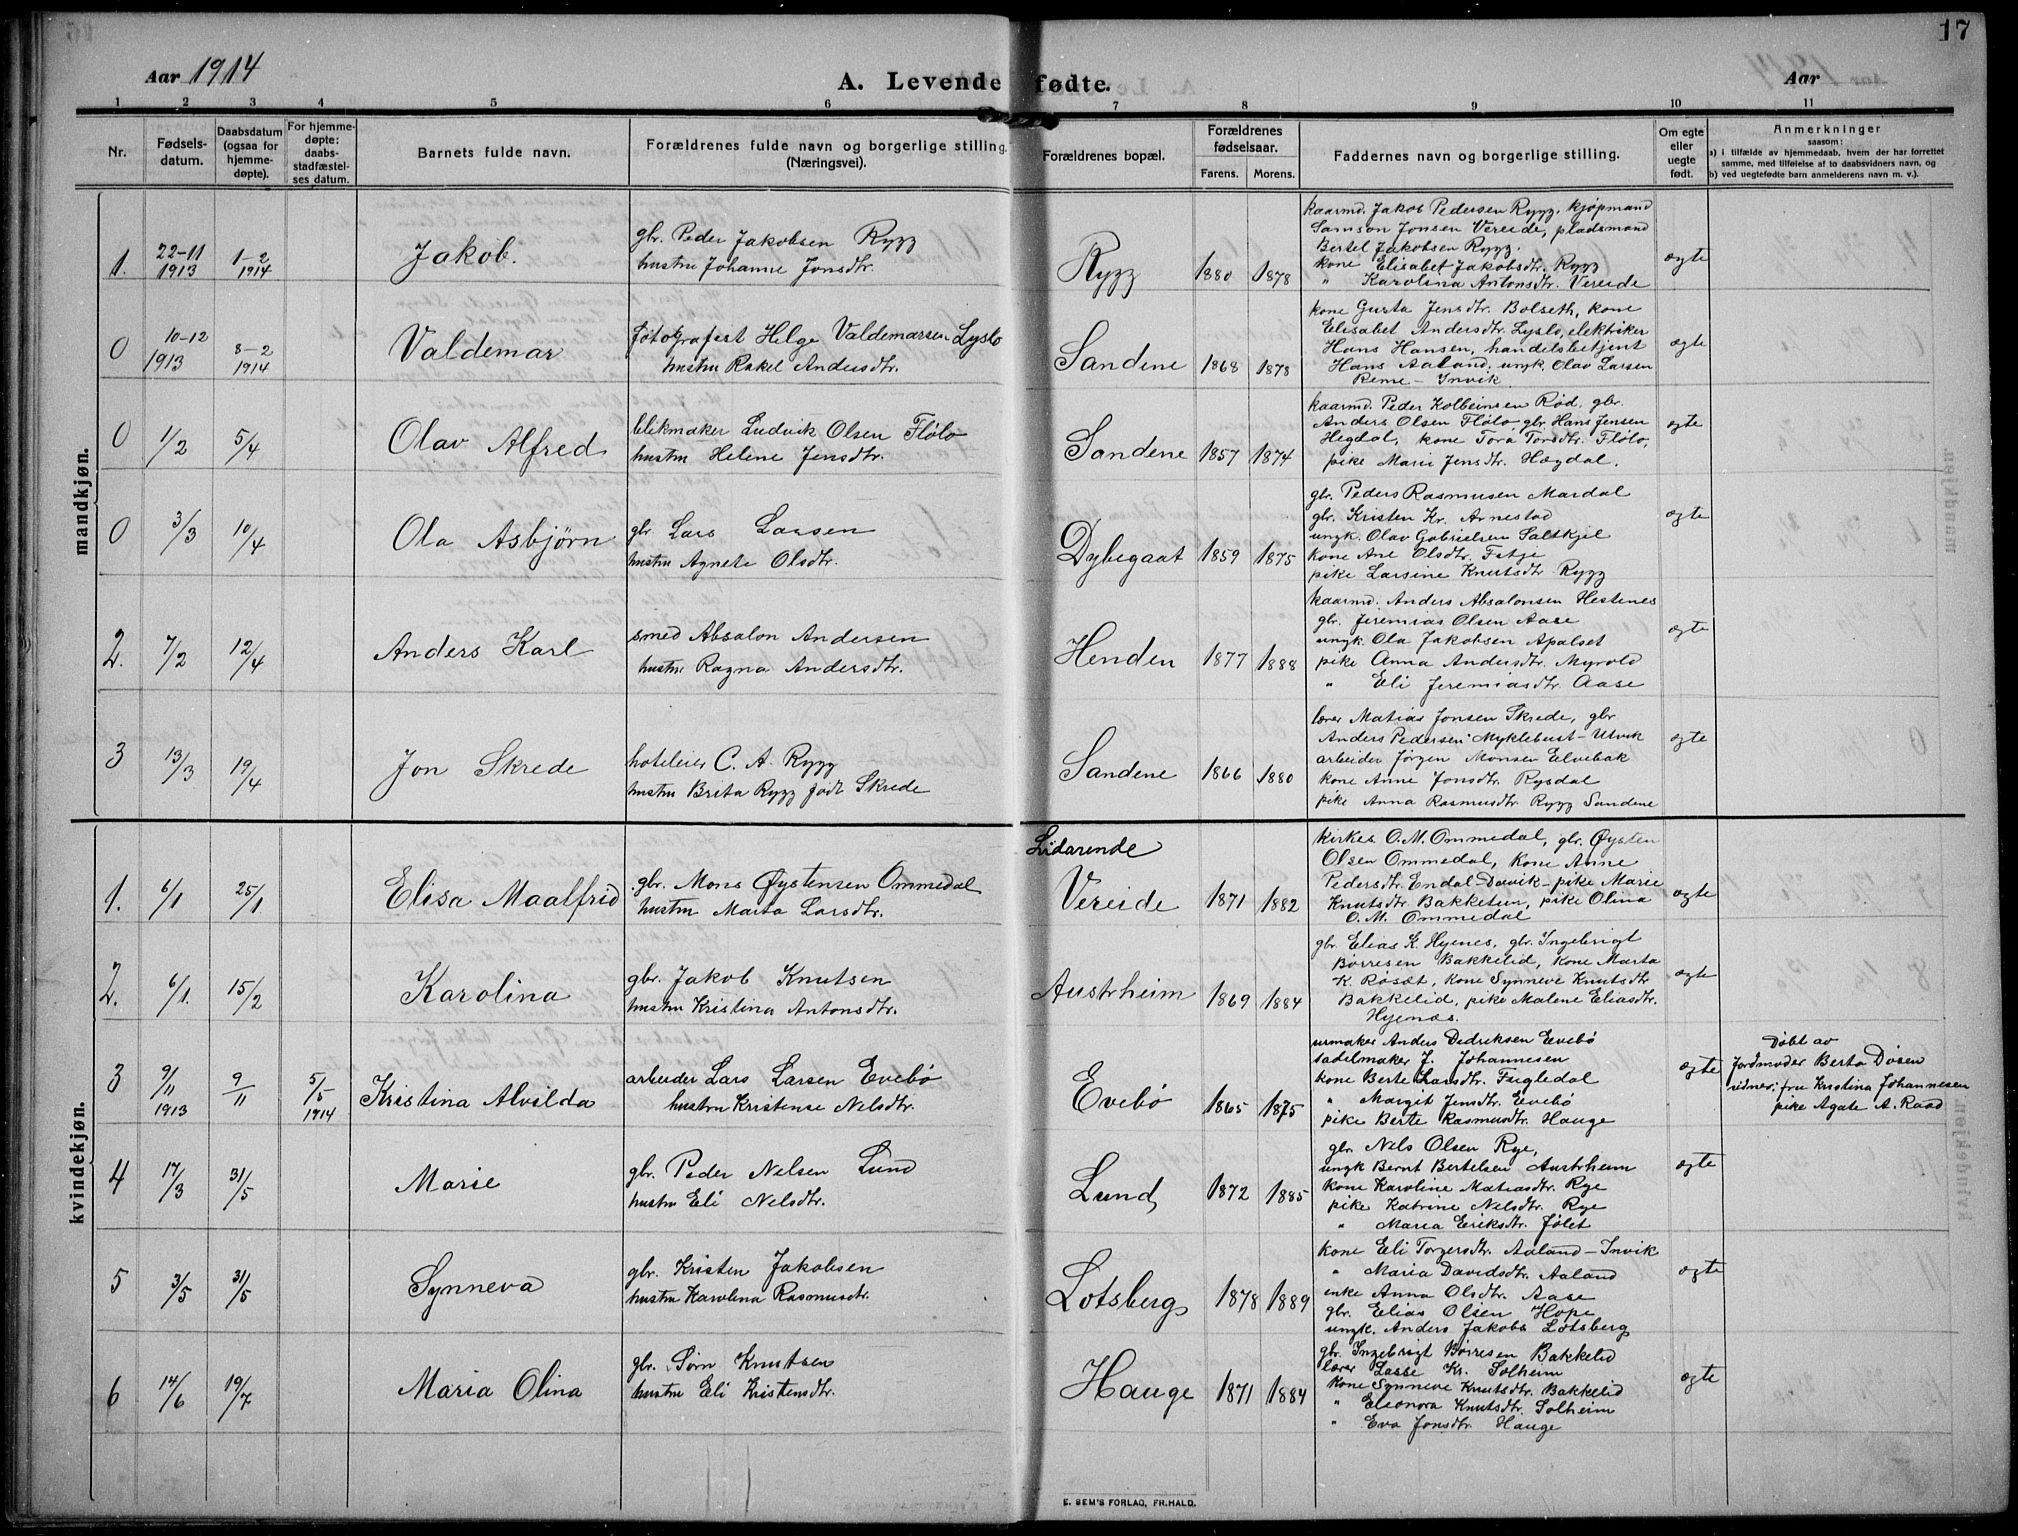 17
Aar 1914
A. Levende fødte.
Aar
1 2 3 4 5 6 7 8 9 10 11
Nr.
Fødselsdatum.
Daabsdatum (ogsaa for hjemmedøpte).
For hjemmedøpte: daabsstadfæstelses datum.
Barnets fulde navn.
Forældrenes fulde navn og borgerlige stilling. (Næringsvei).
Forældrenes bopæl.
Forældrenes fødselsaar.
Farens. Morens.
Faddernes navn og borgerlige stilling.
Om egte eller uegte født.
Anmerkninger
saasom:
a) i tilfælde av hjemmedaab, hvem der har forrettet samme, med tilføielse af to daabsvidners navn, og
b) ved uegtefødte barn anmelderens navn m. v.).
mandkjøn.
1. 22-11 1913 1-2 1914 Jakob.
gbr. Peder Jakobsen Rygg
hustru Johanne Jonsdtr.
Rygg 1880 1878
kaarmd. Jakob Pedersen Rygg, kjøpmand
Samson Jonsen Vereide, pladsmand
Bertel Jakobsen Rygg.
kone Elisabet Jakobsdtr. Rygg
" Karolina Antonsdtr. Vereide
ægte
0 10-12 1913 8-2 1914 Valdemar
fotograf Helge Valdemarsen Lyslo
hustru Rakel Andersdtr.
Sandene 1868 1878
kone Gusta Jensdtr. Bolseth, kone
Elisabet Andersdtr. Lyslo, elektriker
Hans Hansen, handelsbetjent
Hans Aaland, ungk. Olav Larsen
Reme - Invik
ægte
0 1/2 5/4 Olav Alfred
blikmaker Ludvik Olsen Fløلو
hustru Helene Jensdtr.
Sandene 1857 1874
kaarmd. Peder Kolbeinsen Rød, gbr.
Anders Olsen Fløto gbr. Hans Jensen
Hegdal, kone Tora Torsdtr. Fløto,
pike Marie Jensdtr. Hægdal.
ægte
0 3/3 10/4 Ola Asbjørn
gbr Lars Larsen
hustru Agnete Olsdtr.
Dybegaat 1859 1875
gbr. Peders Rasmusen Mardal
gbr. Kristen Kr. Arnestad
ungk. Olav Gabrielsen Saltkjel
kone Ane Olsdtr. Fitje
pike Larsine Knutsdtr Rygg
ægte
2. 7/2 12/4 Anders Karl
smed Absalon Andersen
hustru Ragna Andersdtr.
Henden 1877 1888
kaarmd. Anders Absalonsen Hestenes
gbr. Jeremias Olsen Aase
ungk Ola Jakobsen Apalset
pike Anna Andersdtr. Myrold
" Eli Jeremiasdtr. Aase
ægte
3 13/3 19/4 Jon Skrede
hoteleier C. A. Rygg
hustru Brita Rygg født Skrede
Sandene 1866 1880
lærer Matias Jonsen Skrede, gbr
Anders Pedersen Myklebust - Utvik
arbeider Jørgen Monsen Elvebak
kone Anne Jonsdtr. Rysdal
pike Anna Rasmusdtr. Rygg Sandene
ægte
kvindekjøn.
1. 6/1 25/1 Elisa Maalfrid
gbr. Mons Øystensen Ommedal
hustru Marta Larsdtr.
Lidarende
Vereide 1871 1882
kirkes. O. M. Ommedal, gbr. Øysten
Olsen Ommedal, kone Anne
Pedersdtr. Endal - Davik - pike Marie
Knutsdtr Bakketun, pike Olina
O. M. Ommedal
ægte
2. 6/1. 15/2 Karolina
gbr. Jakob Knutsen
hustru Kristina Antonsdtr.
Austrheim 1869 1884
gbr. Elias K. Hyenes, gbr. Ingebrigt
Børresen Bakkelid, kone Marta
K. Røsæt, kone Synneve Knutsdtr
Bakkelid, pike Malene Eliasdtr.
Hyenæs.
ægte
3 9/11 1913 9/11 5/5 1914 Kristina Alvilda
arbeider Lars Larsen Evebø
hustru Kristense Nelsdtr.
Evebø 1865 1875
urmaker Anders Dedriksen Evebø
sadelmaker J. Johannesen
kone Berte Larsdtr. Fugledal
" Margit Jensdtr. Evebø
pike Berte Rasmusdtr. Hauge
ægte
Døbt av
jordmoder Berta Døsen
vidner: fru Kristina Johannesen
pike Agate A. Raad
4 17/3 31/5 Marie
gbr. Peder Nelsen Lund
hustru Eli Nelsdtr.
Lund 1872 1885
gbr. Nils Olsen Rye,
ungk Bernt Bertelsen Austrheim
kone Karoline Matiasdtr. Rye
pike Katrine Nelsdtr. Rye
" Maria Eriksdtr. Jølet
ægte
5 3/5 31/5 Synneva
gbr. Kristen Jakobsen
hustru Karolina Rasmusdtr.
Lotsberg 1878 1889
kone Eli Torgersdtr. Aaland - Invik
" Maria Davidsdtr. Aaland
enke Anna Olsdtr. Aase
gbr. Elias Olsen Hope
ungk. Anders Jakobs Lotsberg
ægte
6 14/6 19/7 Maria Olina
gbr. Sørn Knutsen
hustru Eli Kristensdtr.
Hauge 1871 1884
gbr. Ingebrigt Børresen Bakkelid
lærer Lasse Kr. Solheim
kone Synneve Knutsdtr. Bakkelid
" Eleonora Knutsdtr. Solheim
" Eva Jonsdtr. Hauge
ægte
E. SEM'S FORLAG, FR.HALD.